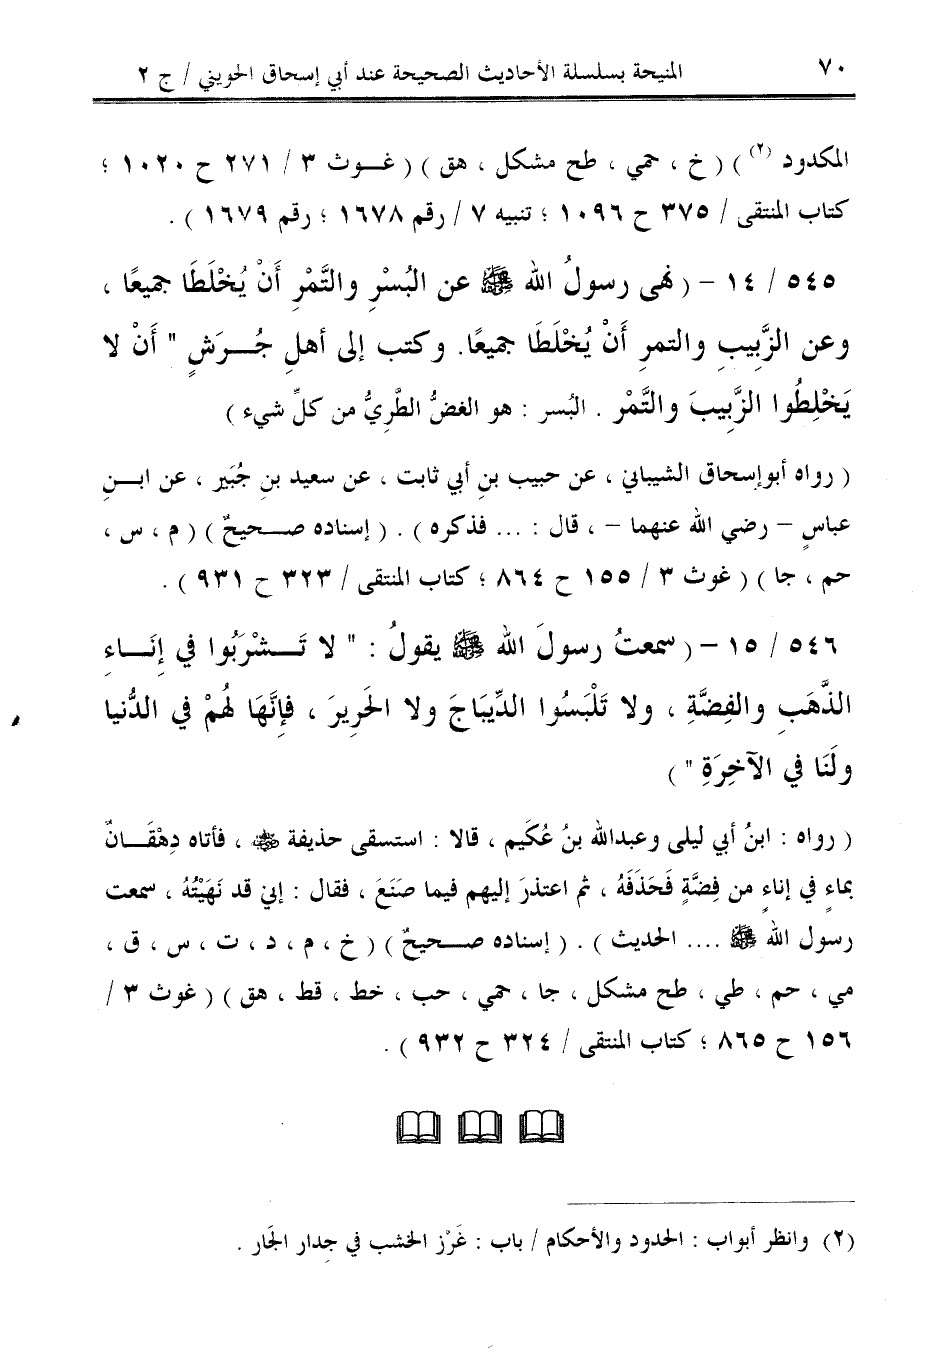 ٧٠ المنيحة بسلسلة الأحاديث الصحيحة عند أبي إسحاق الحويني / ج ٢
المكدود (٢) ) ( خ ، حمي ، طح مشكل ، هق ) ( غـوث ٣ / ٢٧١ ح ١٠٢٠ ؛
كتاب المنتقى / ٣٧٥ ح ١٠٩٦ ؛ تنبيه ٧ / رقم ١٦٧٨ ؛ رقم ١٦٧٩ ) .
٥٤٥ / ١٤ – ( نهى رسولُ الله ﷺ عن البُسْرِ والتَّمْرِ أَنْ يُخْلَطَا جميعًا ،
وعن الزَّبِيبِ والتمرِ أَنْ يُخْلَطَا جميعًا. وكتب إلى أهلِ جُـرَشٍ " أَنْ لا
يَخْلِطُوا الزَّبِيبَ والتَّمْرَ . البُسر : هو الغضُّ الطَّرِيُّ من كلِّ شيء )
( رواه أبوإسحاق الشيباني ، عن حبيب بنِ أبي ثابت ، عن سعيد بنِ جُبَير ، عن ابـنِ
عباسٍ – رضي الله عنهما – ، قال : ... فذكره ) . ( إسناده صـحيحٌ ) ( م ، س ،
حم ، جا ) ( غوث ٣ / ١٥٥ ح ٨٦٤ ؛ كتاب المنتقى / ٣٢٣ ح ٩٣١ ) .
٥٤٦ / ١٥ – ( سمعتُ رسولَ الله ﷺ يقولُ : " لا تَـشْرَبُوا في إِنَـاءِ
الذَّهَبِ والفِضَّةِ ، ولا تَلْبَسُوا الدِّيبَاجَ ولا الحَرِيرَ ، فإِنَّهَا لهُمْ في الدُّنيا
ولَنَا في الآخِرَةِ " )
( رواه : ابنُ أبي ليلى وعبدالله بنُ عُكَيم ، قالا : استسقى حذيفة ﵁ ، فأتاه دِهْقَـانٌ
بماءٍ في إناءٍ من فِضَّةٍ فَحَذَفَهُ ، ثم اعتذرَ إليهم فيما صَنَعَ ، فقال : إني قد نَهَيْتُهُ ، سمعت
رسول الله ﷺ .... الحديث ) . ( إسناده صـحيحٌ ) ( خ ، م ، د ، ت ، س ، ق ،
مي ، حم ، طي ، طح مشكل ، جا ، حمي ، حب ، خط ، قط ، هق ) ( غوث ٣ /
١٥٦ ح ٨٦٥ ؛ كتاب المنتقى / ٣٢٤ ح ٩٣٢ ) .
(٢) وانظر أبواب : الحدود والأحكام / باب : غَرْز الخشب في جدارِ الجَار .